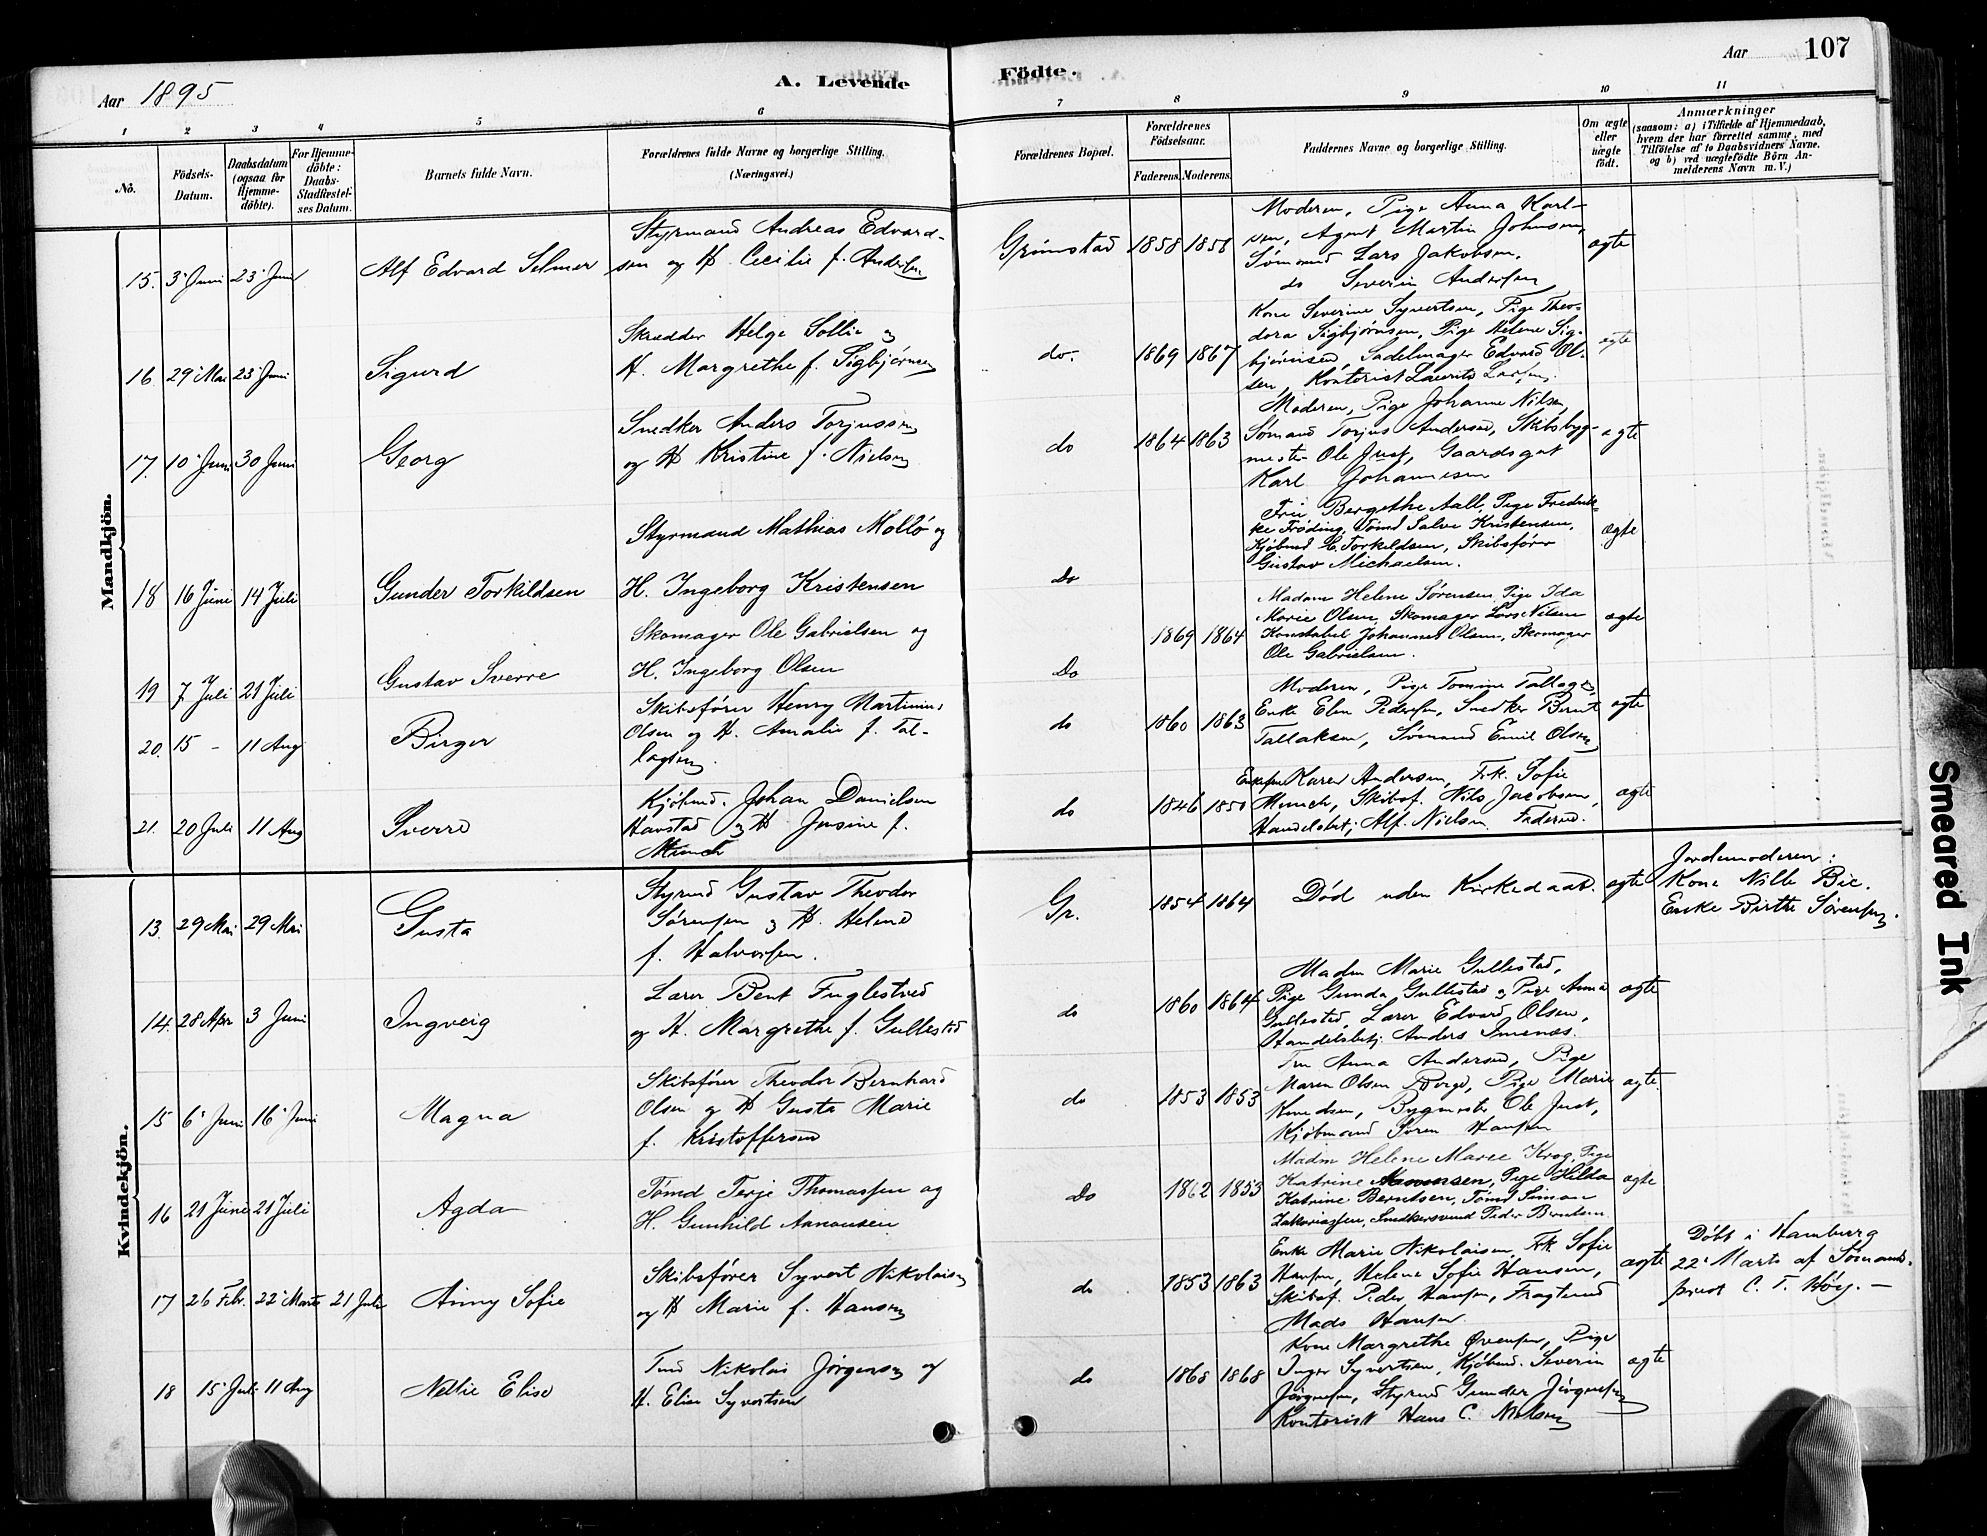 Aar 1895
A. Levende
Födte.
Aar 107
1 2 3 4 5 6 7 8 9 10 11
No.
Födsels-
Datum.
Daabsdatum
(ogsaa for
Hjemme-
döbte).
For Hjemme-
döbte:
Daabs-
Stadfæstel-
ses Datum.
Barnets fulde Navn.
Forældrenes fulde Navne og borgerlige Stilling.
(Næringsvei.)
Forældrenes Bopæl.
Forældrenes
Födselsaar.
Faderens. Moderens.
Faddernes Navne og borgerlige Stilling.
Om ægte
eller
uægte
födt.
Anmærkninger
(saasom: a) i Tilfælde af Hjemmedaab,
hvem der har forrettet samme, med
Tilföielse af to Daabsvidners Navne,
og b) ved uægtefödte Börn An-
melderens Navn m. V.)
Mandkjön.
15. 3' Juni 23' Juni
Alf Edvard Selmer
Styrmand Andreas Edvard-
sen og H. Cecilie f. Andersen
Grimstad 1858 1858
Moderen, Pige Anna Karl-
sen, Agent Martin Johnsen,
Sømand Lars Jakobsen,
do Severin Andersen
ægte
16. 29' Mai 23' Juni
Sigurd
Skrædder Helge Sollie og
H. Margrethe f. Sigbjørnsen
do. 1869 1867
Kone Severine Syvertsen, Pige Theo-
dora Sigbjørnsen, Pige Helene Sig-
bjørnsen, Sadelmager Edvard Ol-
sen, Kontorist Laurits Larsen.
ægte
17. 10' Juni 30 Juni
Georg
Snedker Anders Torjussen
og H. Kristine f. Nielsen
do 1864 1863
Moderen, Pige Johanne Nilsen
Sømand Torjus Andersen, Skibsbyg-
mester Ole Just, Gaardsgut
Karl Johannesen
ægte
18 16 Juni 14 Juli
Gunder Torkildsen
Styrmand Mathias Mollø og
H. Ingeborg Kristensen
Do
Fru Bergethe Aall, Pige Fredrik-
ke Frøding, Tømd Salve Kristensen,
Kjøbmd C. Torkildsen, Skibsfører
Gustav Michaelsen.
ægte
19 7 Juli 21 Juli
Gustav Sverre
Skomager Ole Gabrielsen og
H. Ingeborg Olsen
Do 1869 1864
Madam Helene Sørensen, Pige Ida
Marie Olsen, Skomager Lars Nilsen
Konstabel Johannes Olsen, Skomager
Ole Gabrielsen.
ægte
20. 15 - 11 Aug
Birger
Skibsfører Henry Martinius
Olsen og H. Amalie f. Tal-
laksen.
do 1860 1863
Moderen, Pige Tomine Tallaks,
Enke Elen Pedersen, Snedker Bernt
Tallaksen, Sømand Emil Olsen
ægte
21. 20 Juli 11 Aug
Sverre
Kjøbmd. Johan Danielsen
Havstad og H. Jensine f.
Munch
do 1846 1850
Enkefru Karen Andersen, Frk. Sofie
Munch, Skibsf. Nils Jacobsen,
Handelsbetj. Alf. Nielsen. Faderen.
ægte
Kvindekjön.
13. 29 Mai 29 Mai
Gusta
Styrmd Gustav Theodor
Sørensen og H. Helene
f. Halvorsen.
Gr. 1854 1864
Død uden Kirkedaab.
ægte
Jordemoderen:
Kone Nille Bie.
Enke Birthe Sørensen.
14. 28 Apr 3 Juni
Ingveig
Lærer Bent Fuglestved
og H. Margrethe f. Gullestad
do 1860 1864
Madm Marie Gullestad,
Pige Gunda Gullestad og Pige Anna
Gullestad, Lærer Edvard Olsen,
Handelsbetj. Anders Imenæs.
ægte
15 6' Juni 16' Juni
Magna
Skibsfører Theodor Bernhard
Olsen og H. Gusta Marie
f. Kristoffersen
do 1853 1853
Fru Anna Andersen, Pige
Maren Olsen Berge, Pige Marie
Knudsen, Bygmester Ole Just,
Kjøbmand Søren Hansen
ægte.
16 21 Juni 21 Juli
Agda
Tømd Terje Thomassen og
H. Gunhild Aanonsen
Do 1862 1853
Madm Helene Marie Krog, Pige
Katrine Aanonsen, Pige Hilda
Katrine Berntsen, Tømd Simon
Zakariassen, Snedkersvend Peder Berntsen.
ægte
17 26 Febr. 22' Marts 21 Juli
Anny Sofie
Skibsfører Syvert Nikolaisen
og H Marie f. Hansen
do 1853 1863
Enke Marie Nikolaisen, Frk. Sofie
Hansen, Helene Sofie Hansen,
Skibsf. Peder Hansen, Fragtmd
Mads Hansen
ægte
Döbt i Hamburg
22' Marts af Sømands-
prest C. T. Høy. —
18 15' Juli 11 Aug
Nellie Elise
Tmd Nikolai Jørgensen og
H. Elise Syvertsen
do 1868 1868
Kone Margrethe Øvensen, Pige
Inger Syvertsen, Kjøbmd. Severin
Jørgensen, Styrmd Gunder Jörgensen
Kontorist Hans C. Nielsen
ægte
Smeared Ink